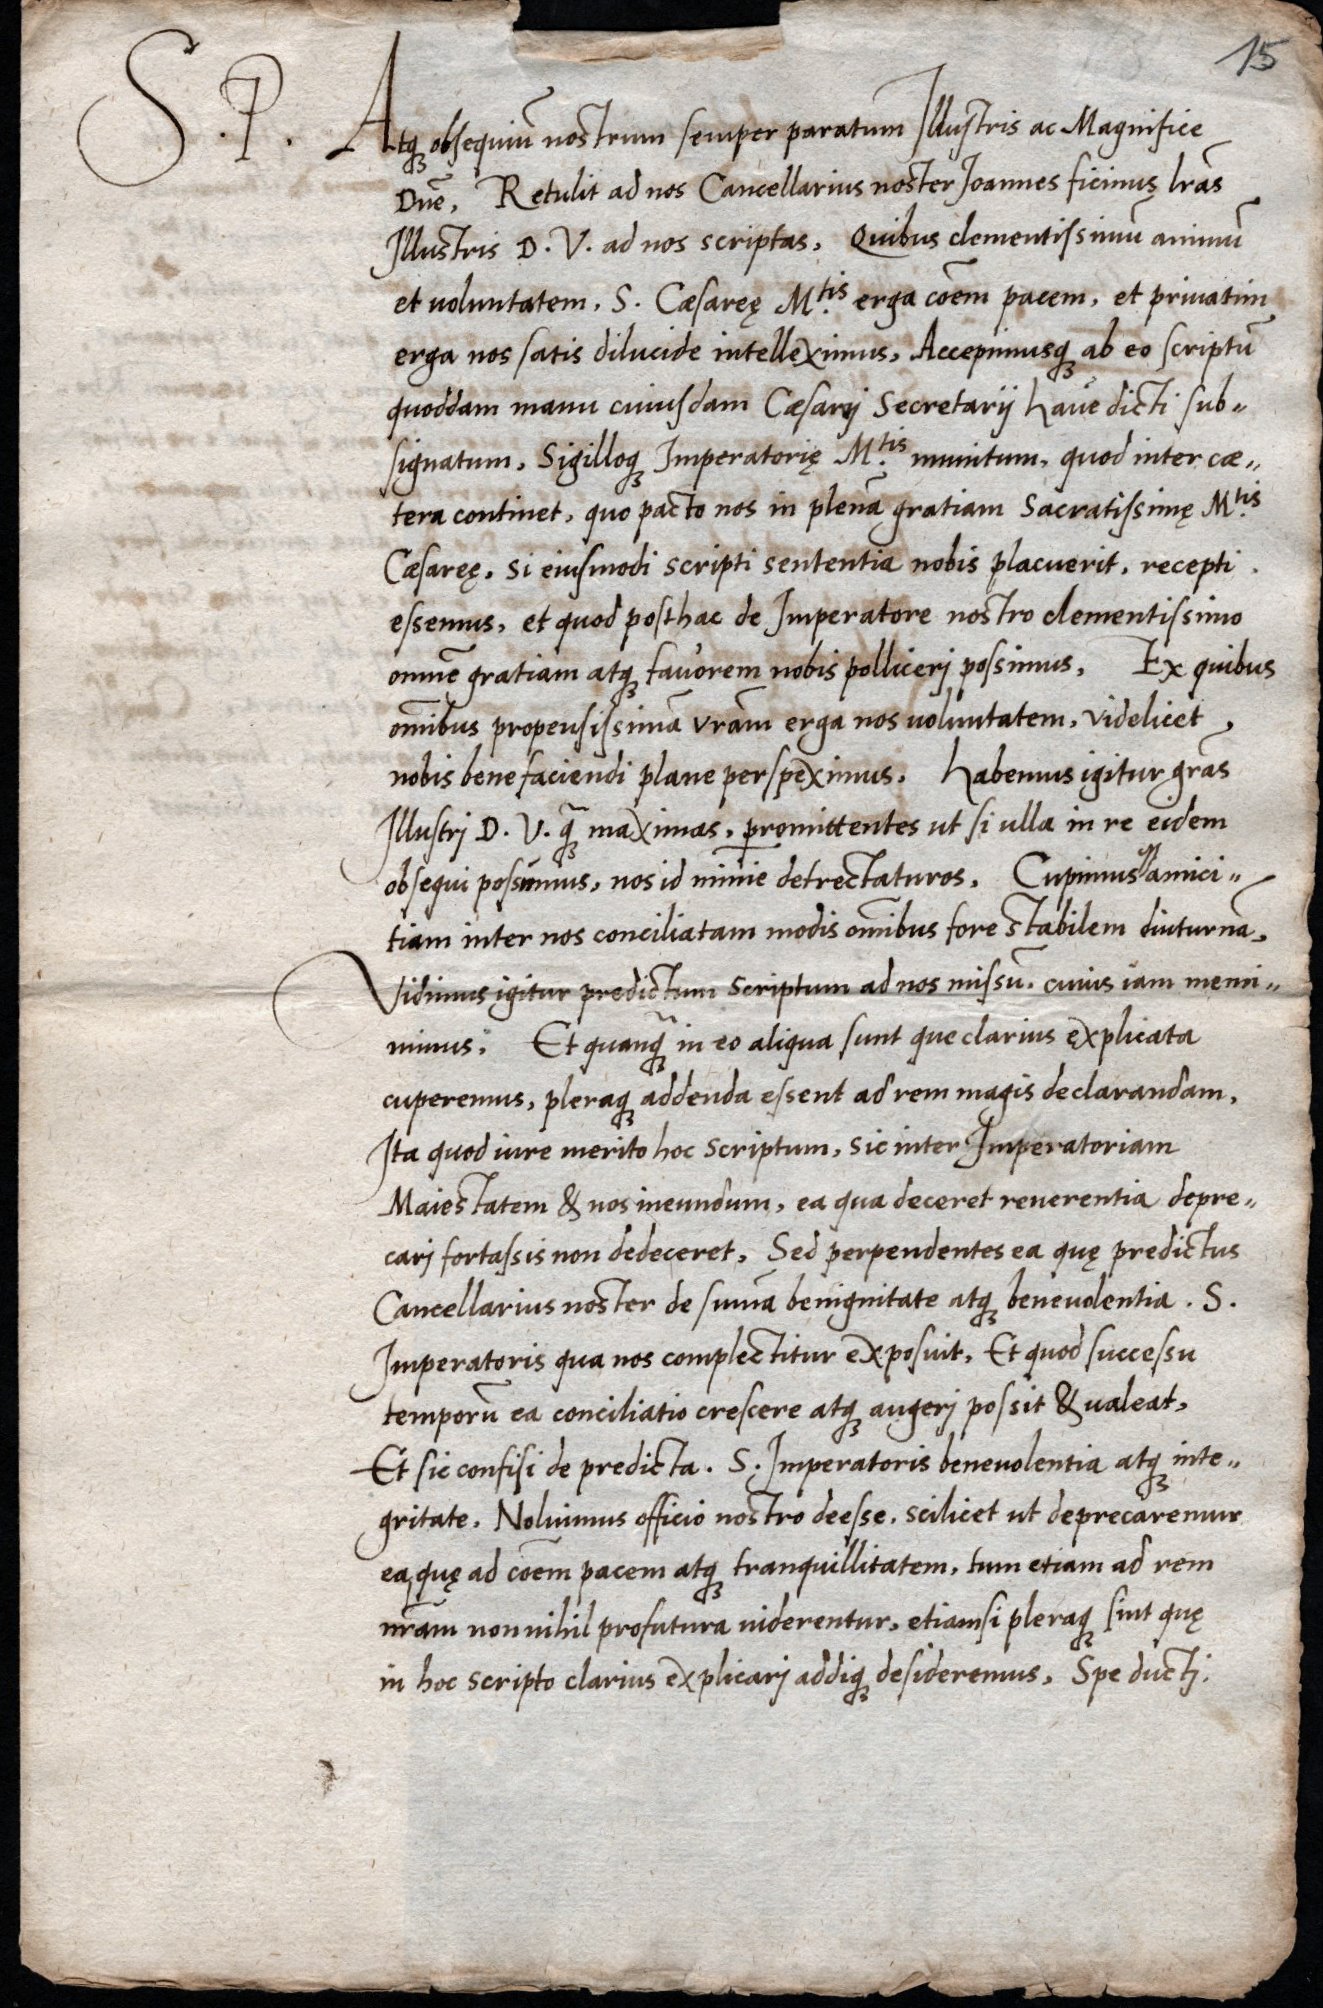 15
S. P. Atq obsequiū nostrum semper paratum Illustris ac Magnifice
Dn̄e, Retulit ad nos Cancellarius noster Joannes ficinus lr̄as
Illustris D. V. ad nos scriptas, Quibus clementissimū animū
et voluntatem, S. Cæsareę M.tis erga cōem pacem, et priuatim
erga nos satis dilucide intelleximus, Accepimusq ab eo scriptū
quoddam manu cuiusdam Cæsarij Secretarij haue dicti sub-
signatum, Sigilloq Imperatorię M.tis munitum, quod inter cæ-
tera continet, quo pacto nos in plenā gratiam Sacratissimę M.tis
Cæsareę, si eiusmodi scripti sententia nobis placuerit, recepti
essemus, et quod posthac de Imperatore nostro clementissimo
omnē gratiam atq fauorem nobis pollicerj possimus, Ex quibus
om̄ibus propensissimā vr̄am erga nos uoluntatem, videlicet,
nobis benefaciendi plane perspeximus. Habemus igitur gr̄as
Illustrj D. V. q̄ maximas, promittentes ut si ulla in re eidem
obsequi possumus, nos id minīe detrectaturos, Cupimus amici-
tiam inter nos conciliatam modis om̄ibus fore stabilem diuturnā,
Vidimus igitur predictum scriptum ad nos missū, cuius iam memi-
nimus, Et quanq̄ in eo aliqua sunt que clarius explicata
cuperemus, pleraq addenda essent ad rem magis declarandam,
Ita quod iure merito hoc scriptum, sic inter Imperatoriam
Maiestatem & nos ineundum, ea qua deceret reuerentia depre-
carj fortassis non dedeceret, Sed perpendentes ea quę predictus
Cancellarius noster de sum̄a benignitate atq beneuolentia. S.
Imperatoris qua nos complectitur exposuit, Et quod successu
temporū ea conciliatio crescere atq augerj possit & ualeat,
Et sic confisi de predicta. S. Imperatoris beneuolentia atq inte-
gritate, Noluimus officio nostro deesse, scilicet ut deprecaremur
ea, quę ad cōem pacem atq tranquillitatem, tum etiam ad rem
nr̄am nonnihil profutura uiderentur, etiamsi pleraq sint quę
in hoc scripto clarius explicarj addiq desideremus, Spe ductj